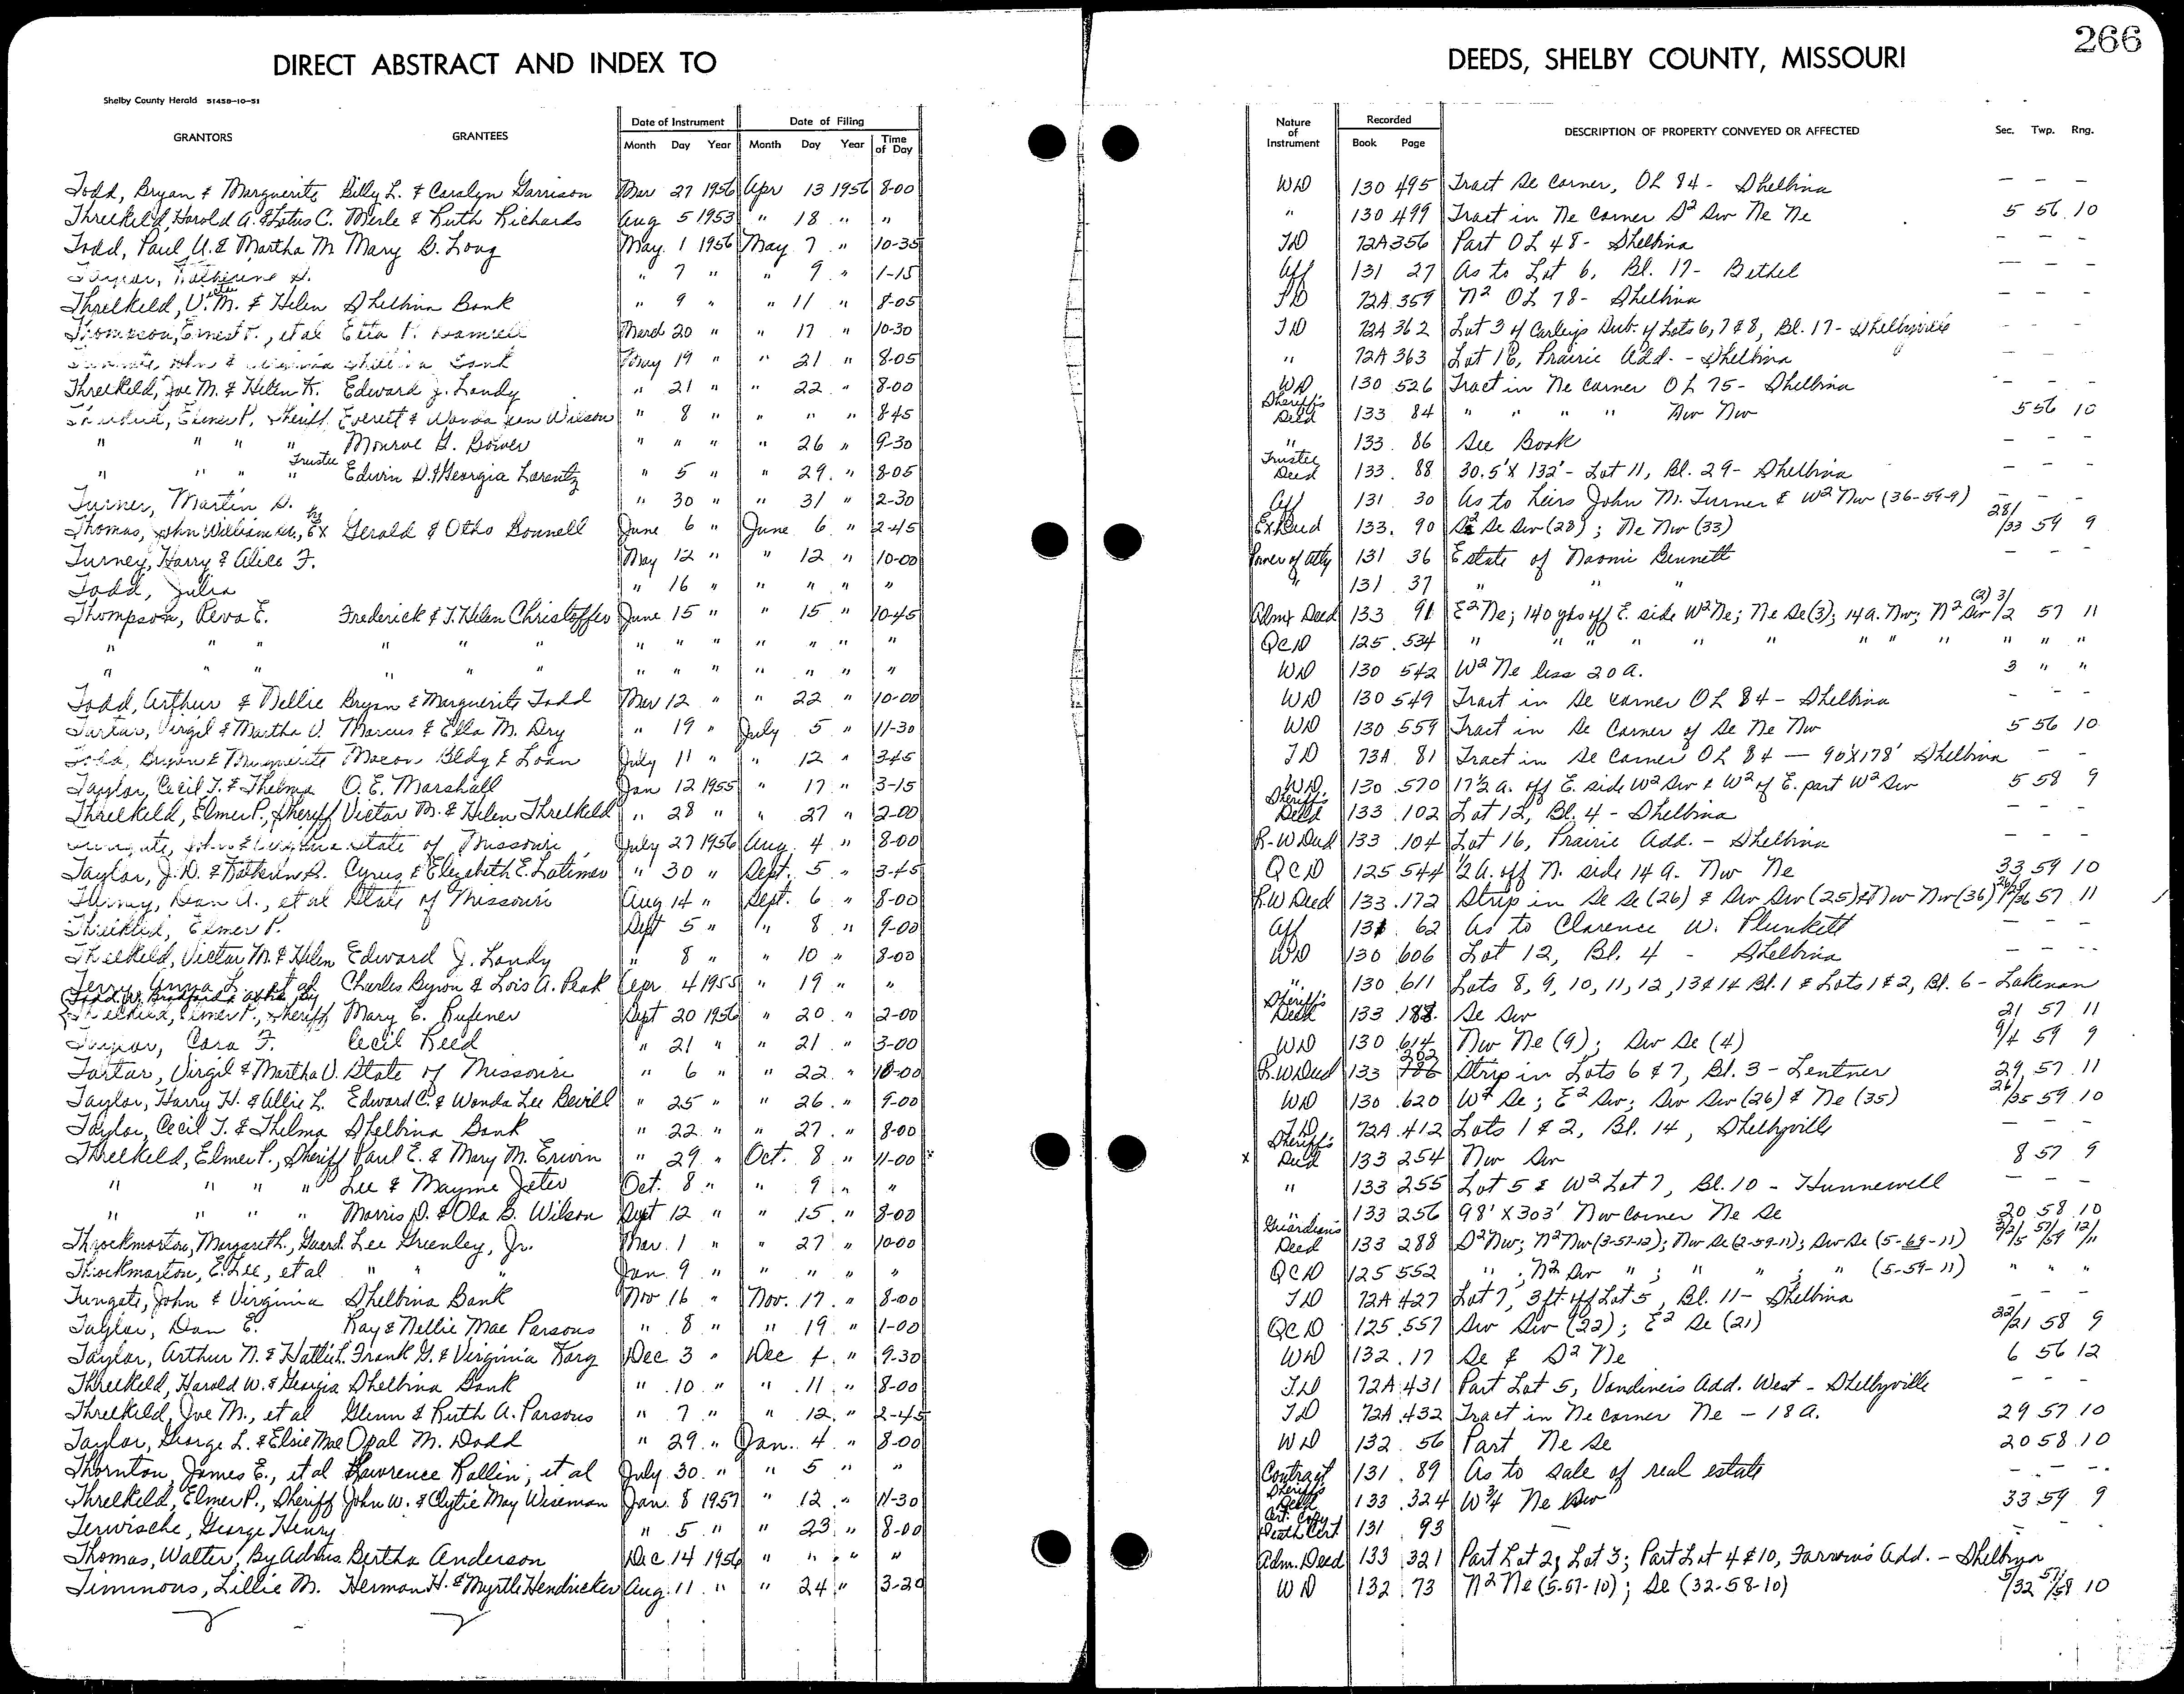 266
DIRECT ABSTRACT AND INDEX TO DEEDS, SHELBY COUNTY, MISSOURI
Shelby County Herald 51458-10-51
GRANTORS GRANTEES Date of Instrument Month Day Year Date of Filing Month Day Year Time of Day Nature of Instrument Recorded Book Page DESCRIPTION OF PROPERTY CONVEYED OR AFFECTED Sec. Twp. Rng.
Todd, Bryan & Marguerite Billy L. & Carolyn Garrison Mar 27 1956 Apr 13 1956 8-00 WD 130 495 Tract Se Corner, OL 84 - Shelbina - - -
Threlkeld, Harold A. & Lotus C. Merle & Ruth Richards Aug 5 1953 " 18 " " " 130 499 Tract in Ne Corner S² Sw Ne Ne 5 56 10
Todd, Paul A. & Martha M. Mary B. Long May 1 1956 May 7 " 10-35 TD 72A 356 Part OL 48 - Shelbina - - -
Taylor, Katherine S. " 7 " " 9 " 1-15 Aff 131 27 As to Lot 6, Bl. 17 - Bethel - - -
Threlkeld, V. M. & Helen Shelbina Bank " 9 " " 11 " 8-05 TD 72A 359 N² OL 78 - Shelbina - - -
Thompson, Ernest F., et al Etta March 20 " " 17 " 10-30 TD 72A 362 Lot 3 of Sub. of Lots 6, 7 & 8, Bl. 17 - Shelbyville - - -
John & Virginia Shelbina Bank May 19 " " 21 " 8-05 " 72A 363 Lot 16, Prairie Add. - Shelbina - - -
Threlkeld, Joe M. & Helen K. Edward J. Landy " 21 " " 22 " 8-00 WD 130 526 Tract in Ne Corner OL 75 - Shelbina - - -
Threlkeld, Elmer P., Sheriff Everett & Wanda Wilson " 8 " " " " 8-45 Sheriff's Deed 133 84 " " " " Nw Nw 5 56 10
" " " " Monroe G. " " " " 26 " 9-30 " 133 86 See Book - - -
" " " Trustee " Edwin D. & Georgia Larentz " 5 " " 29 " 8-05 Trustee Deed 133 88 30.5' X 132' - Lot 11, Bl. 29 - Shelbina - - -
Turner, Martin S. " 30 " " 31 " 2-30 Aff 131 30 As to heirs John M. Turner & W² Nw (36-59-9) - - -
Thomas, John William by Ex Gerald & Otho Bonnell June 6 " June 6 " 2-45 Ex Deed 133 90 S² Se Sw (28); Ne Nw (33) 28/33 59 9
Turney, Harry & Alice F. May 12 " " 12 " 10-00 Power of Atty 131 36 Estate of Naomi Bennett - - -
Todd, Julia " 16 " " " " " " 131 37 " " "
Thompson, Reva E. Frederick & T. Helen Christoffer June 15 " " 15 " 10-45 Admx Deed 133 91 E² Ne; 140 yds off E. side W² Ne; Ne Se (3); 14 a. Nw; N² Sw (2) 3/2 57 11
" " " " " " " " " " " " " QCD 125 534 " " " " " " " " " " "
" " " " " " " " " " " " " WD 130 542 W² Ne less 20 a. 3 " "
Todd, Arthur & Nellie Bryan & Marguerite Todd Mar 12 " " 22 " 10-00 WD 130 549 Tract in Se corner OL 84 - Shelbina - - -
Tartar, Virgil & Martha V. Marcus & Ella M. Dry " 19 " July 5 " 11-30 WD 130 559 Tract in Se Corner of Se Ne Nw 5 56 10
Todd, Bryan & Marguerite Macon Bldg & Loan July 11 " " 12 " 3-45 TD 73A 81 Tract in Se Corner OL 84 — 90' X 178' Shelbina - -
Taylor, Cecil T. & Thelma O. E. Marshall Jan 12 1955 " 17 " 3-15 WD 130 570 17½ a. off E. side W² Sw & W² of E. part W² Sw 5 58 9
Threlkeld, Elmer P., Sheriff Victor M. & Helen Threlkeld " 28 " " 27 " 2-00 Sheriff's Deed 133 102 Lot 12, Bl. 4 - Shelbina - - -
John & Virginia State of Missouri July 27 1956 Aug. 4 " 8-00 R-W Deed 133 104 Lot 16, Prairie Add. - Shelbina - - -
Taylor, J. D. & Kathern B. Cyrus & Elizabeth E. Latimer " 30 " Sept. 5 " 3-45 QCD 125 544 ½ a. off N. side 14 a. Nw Ne 33 59 10
Dan A., et al State of Missouri Aug 14 " Sept. 6 " 8-00 R.W Deed 133 172 Strip in Se Se (26) & Sw Sw (25) & Nw Nw (36) 57 11
Threlkeld, Elmer P. Sept 5 " " 8 " 9-00 Aff 131 62 As to Clarence W. Plunkett - - -
Threlkeld, Victor M. & Helen Edward J. Landy " 8 " " 10 " 8-00 WD 130 606 Lot 12, Bl. 4 - Shelbina - - -
Terry, Anna L. et al Charles Byron & Lois A. Peak Apr 4 1955 " 19 " " " 130 611 Lots 8, 9, 10, 11, 12, 13 & 14 Bl. 1 & Lots 1 & 2, Bl. 6 - Lakenan
Threlkeld, Elmer P., Sheriff Mary E. Rufener Sept 20 1956 " 20 " 2-00 Sheriff's Deed 133 188 Se Sw 21 57 11
Taylor, Cora F. Cecil Reed " 21 " " 21 " 3-00 WD 130 614 Nw Ne (9); Sw Se (4) 9/4 59 9
Tartar, Virgil & Martha V. State of Missouri " 6 " " 22 " 10-00 R.W Deed 133 202 Strip in Lots 6 & 7, Bl. 3 - Lentner 29 57 11
Taylor, Harry H. & Allie L. Edward C. & Wanda Lee Bevill " 25 " " 26 " 9-00 WD 130 620 W² Se; E² Sw; Sw Sw (26) & Ne (35) 26/35 59 10
Taylor, Cecil T. & Thelma Shelbina Bank " 22 " " 27 " 8-00 TD 72A 412 Lots 1 & 2, Bl. 14, Shelbyville - - -
Threlkeld, Elmer P., Sheriff Paul E. & Mary M. Erwin " 29 " Oct. 8 " 11-00 x Sheriff's Deed 133 254 Nw Sw 8 57 9
" " " " Lee & Mayme Jeter Oct. 8 " " 9 " " " 133 255 Lot 5 & W² Lot 7, Bl. 10 - Hunnewell - - -
" " " " Morris D. & Ola B. Wilson Sept 12 " " 15 " 8-00 " 133 256 98' X 303' Nw Corner Ne Se 20 58 10
Throckmorton, Margaret H., Guard. Lee Greenley, Jr. Mar. 1 " " 27 " 10-00 Guardian's Deed 133 288 S² Nw; N² Nw (3-57-12); Nw Se (2-59-11); Sw Se (5-69-11) 3/2/5 57/59 12/11
Throckmorton, E. Lee, et al " " " Jan. 9 " " " " " QCD 125 552 " ; N² Sw " ; " " ; " (5-59-11) " " "
Tungate, John & Virginia Shelbina Bank Nov 16 " Nov. 17 " 8-00 TD 72A 427 Lot 7, 3 ft. off Lot 5, Bl. 11 - Shelbina - - -
Taylor, Dan E. Ray & Nellie Mae Parsons " 8 " " 19 " 1-00 QCD 125 557 Sw Sw (22); E² Se (21) 22/21 58 9
Taylor, Arthur N. & Hattie L. Frank G. & Virginia Karg Dec 3 " Dec 4 " 9-30 WD 132 17 Se & S² Ne 6 56 12
Threlkeld, Harold W. & Georgia Shelbina Bank " 10 " " 11 " 8-00 TD 72A 431 Part Lot 5, Vandiver's Add. West - Shelbyville - - -
Threlkeld, Joe M., et al Glenn & Ruth A. Parsons " 7 " " 12 " 2-45 TD 72A 432 Tract in Ne corner Ne - 18 a. 29 57 10
Taylor, George L. & Elsie Mae Opal M. Dodd " 29 " Jan. 4 " 8-00 WD 132 56 Part Ne Se 20 58 10
Thornton, James E., et al Lawrence Rollin, et al July 30 " " 5 " " Contract 131 89 As to sale of real estate - - -
Threlkeld, Elmer P., Sheriff John W. & Clytie May Wiseman Jan. 8 1957 " 12 " 11-30 Sheriff's Deed 133 324 W¾ Ne Sw 33 59 9
Terwische, George Henry " 5 " " 23 " 8-00 Cert. Copy Death Cert 131 93 — - - -
Thomas, Walter, By Admrs. Bertha Anderson Dec. 14 1956 " " " " Adm. Deed 133 321 Part Lot 2; Lot 3; Part Lot 4 & 10, Farrow's Add. - Shelbina
Timmons, Lillie M. Herman H. & Myrtle Hendricker Aug. 11 " " 24 " 3-20 WD 132 73 N² Ne (5-57-10); Se (32-58-10) 5/32 57/58 10